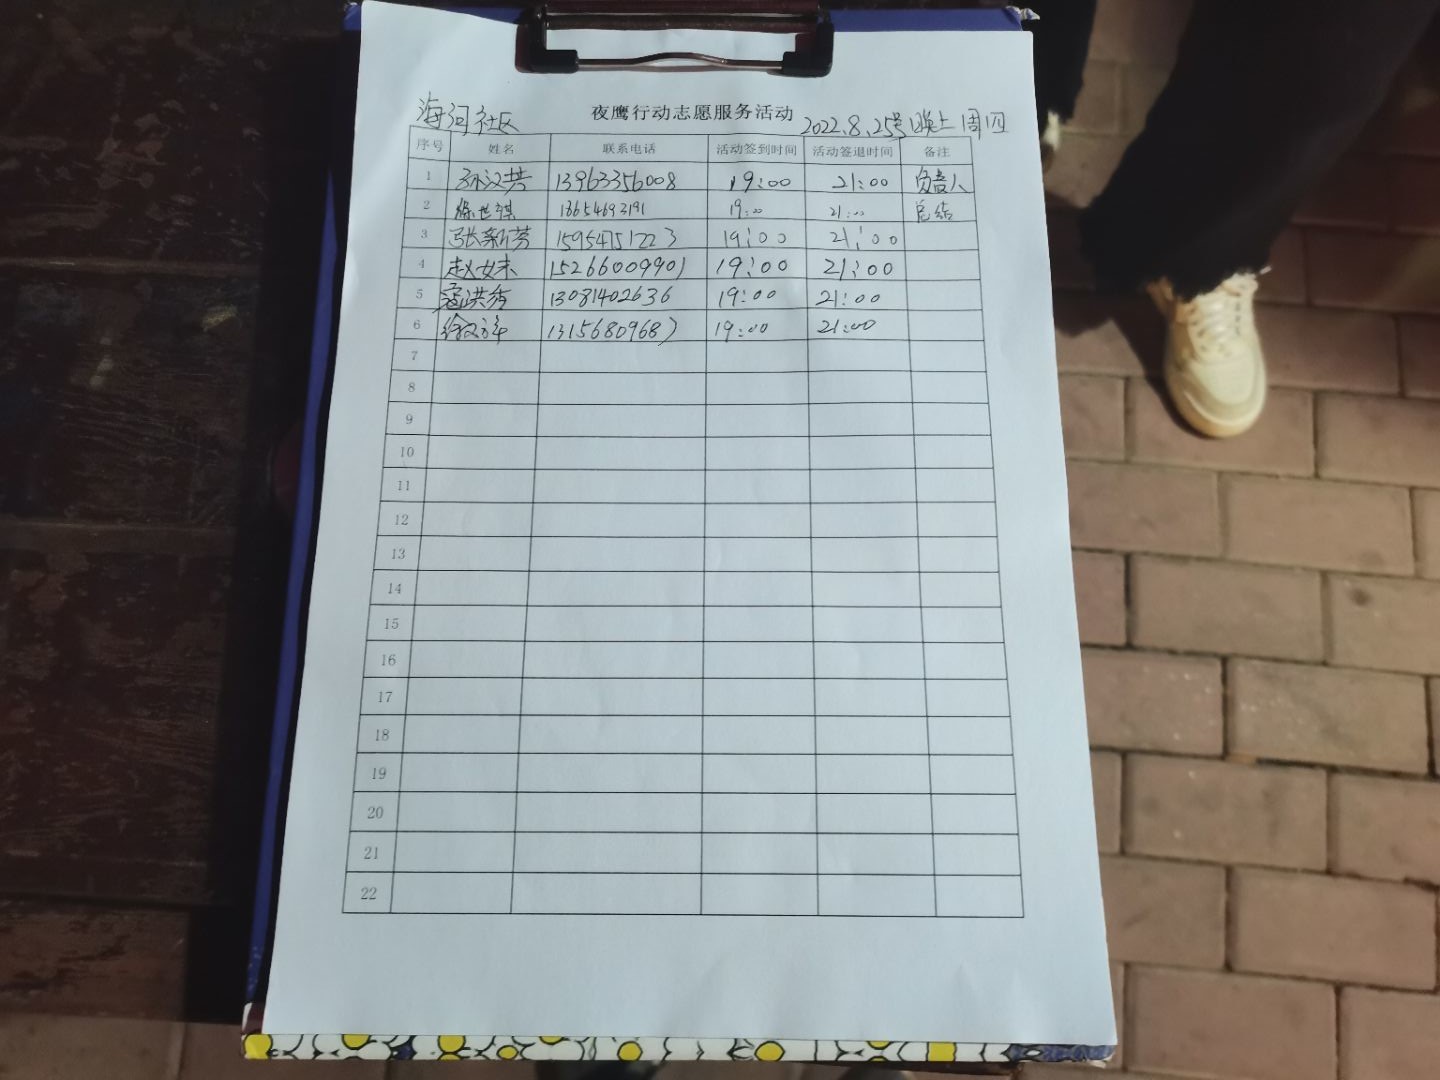 海河社区 夜鹰行动志愿服务活动 2022.8.25号晚上周四
序号 姓名 联系电话 活动签到时间 活动签退时间 备注
1 孙汉芸 13963356008 19:00 21:00 负责人
2 徐世祺 19:00 21:00 总结
3 张新芳 15954751223 19:00 21:00
4 赵女未 15266009901 19:00 21:00
5 13081402636 19:00 21:00
6 13156809687 19:00 21:00
7
8
9
10
11
12
13
14
15
16
17
18
19
20
21
22